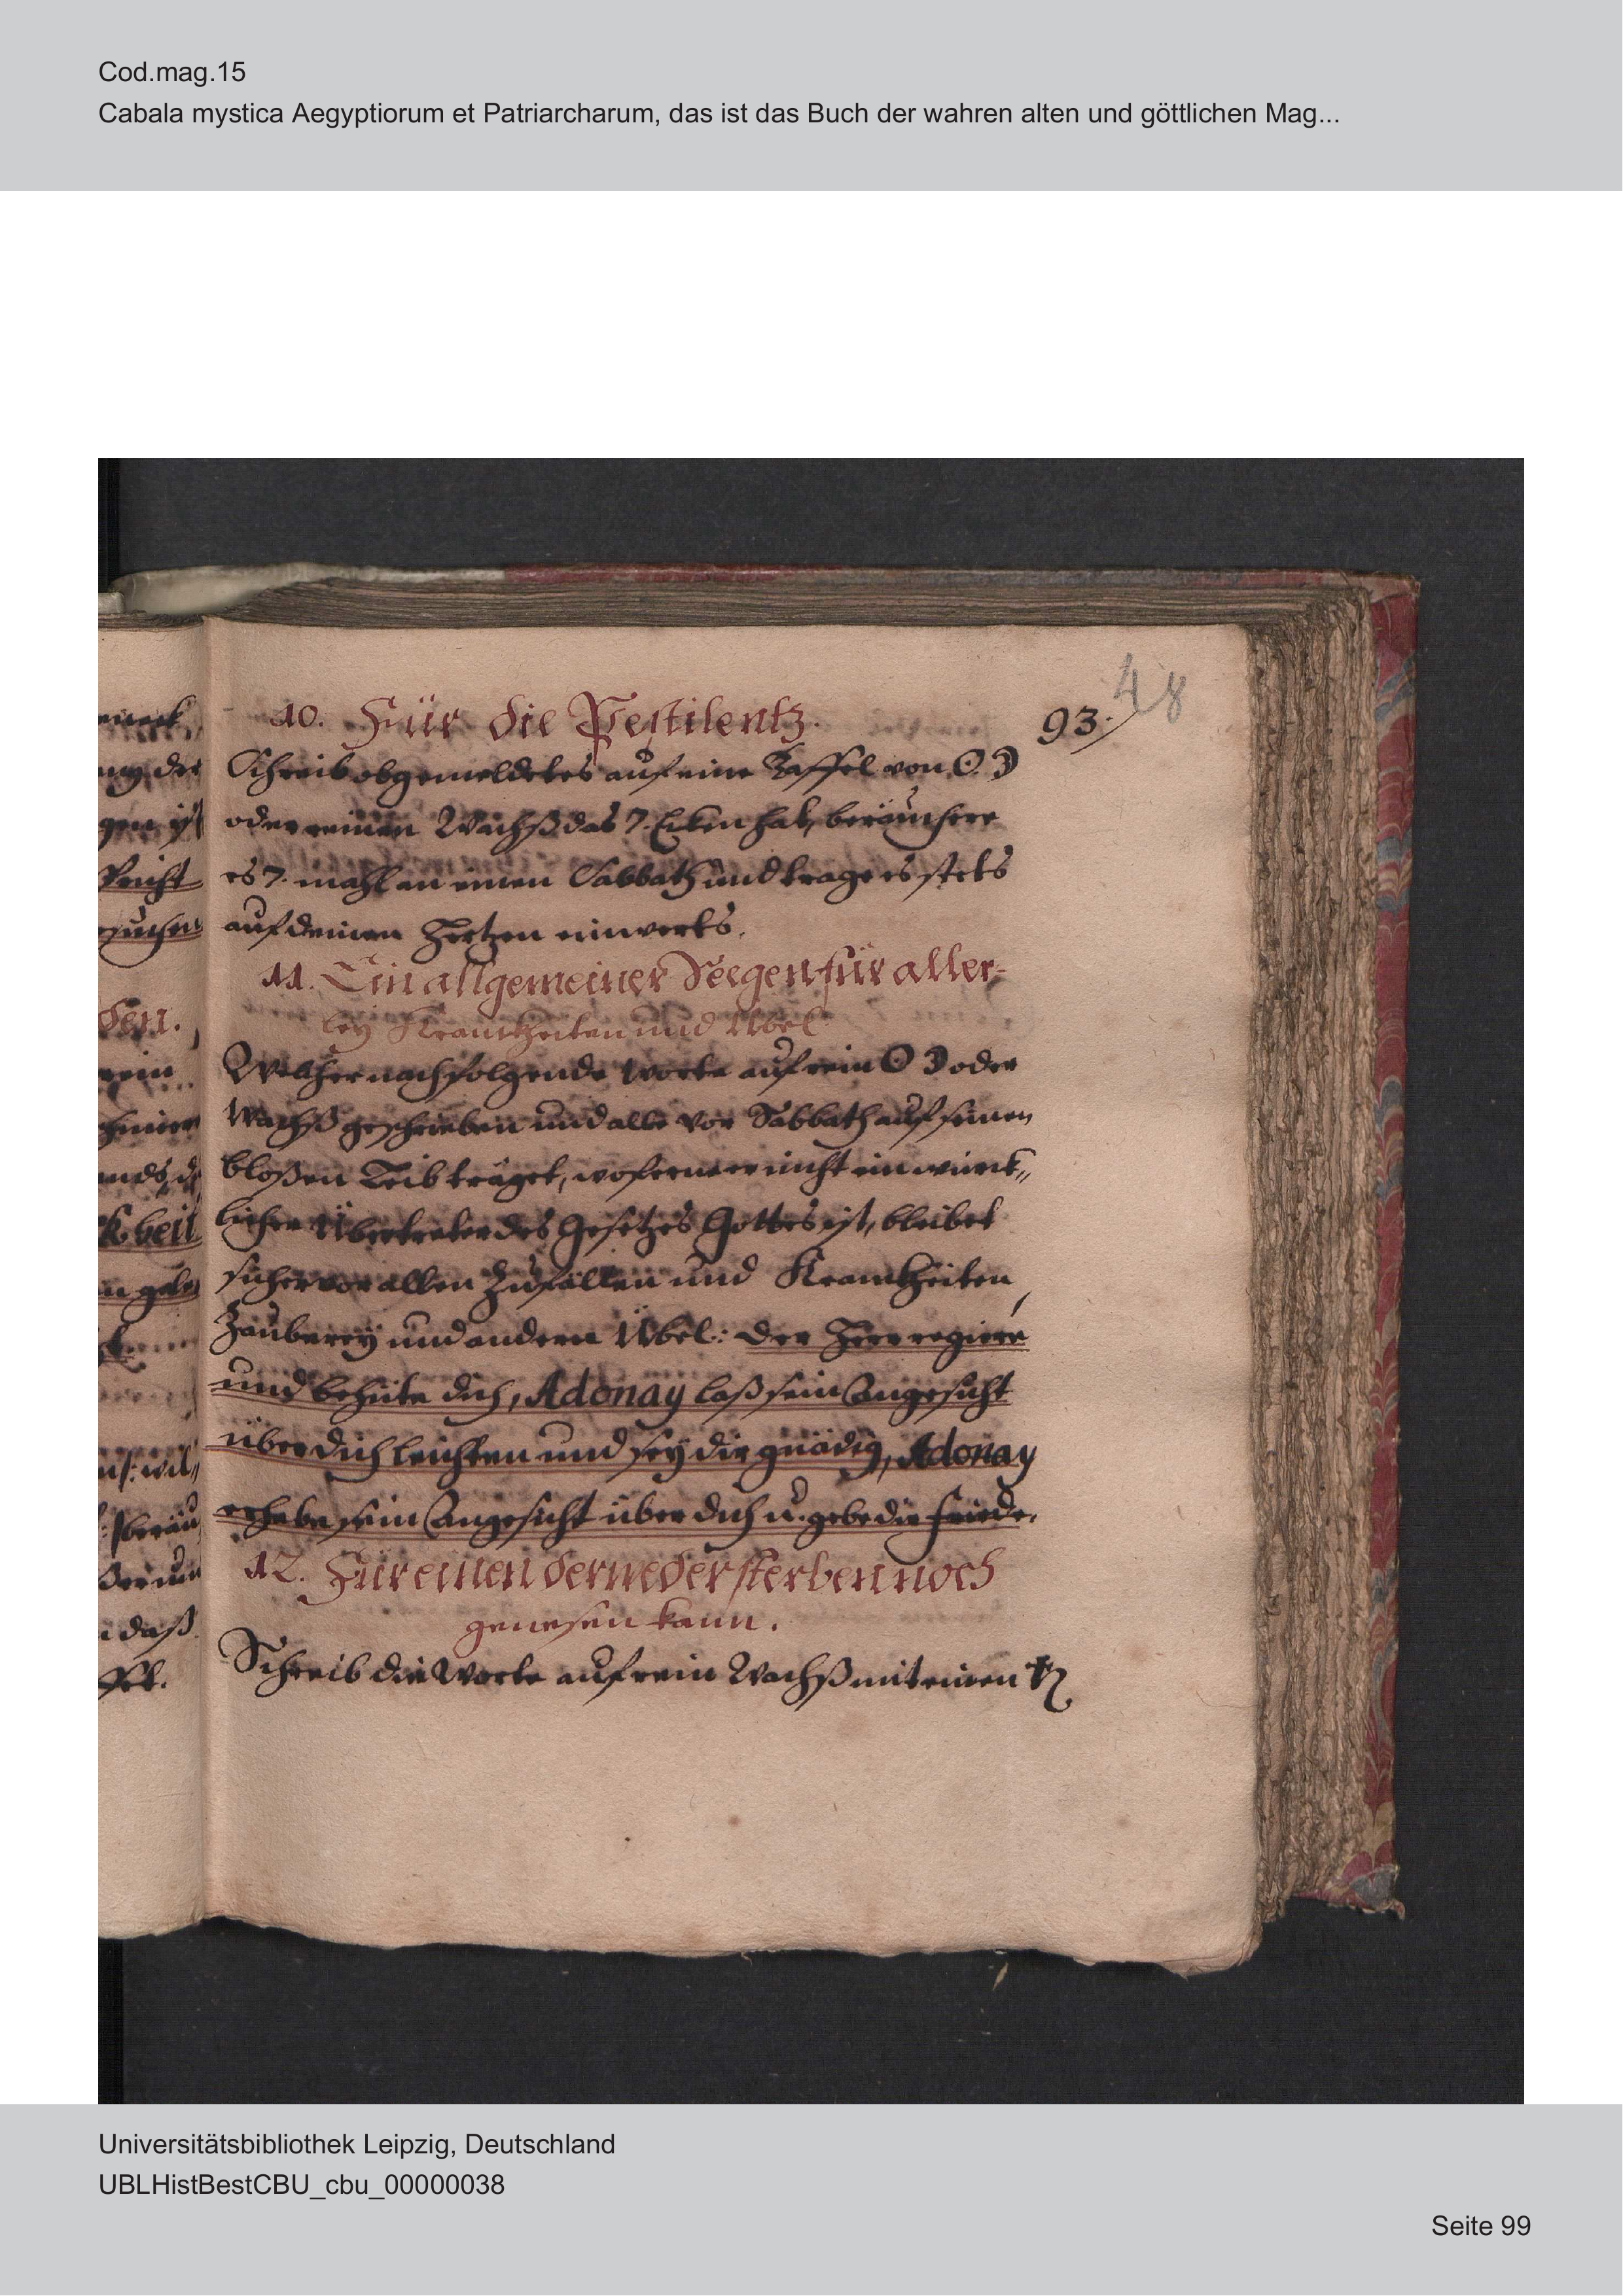 Cod.mag.15
Cabala mystica Aegyptiorum et Patriarcharum, das ist das Buch der wahren alten und göttlichen Mag...
48
93.
10. Für die Pestilentz.
Schreib obgemeldetes auf eine Taffel von ☉ ☽
oder reinen Wachß das 7. Ecken hat, beräuchere
es 7. mahl an einen Sabbath und trage es stets
auf deinen Hertzen einwerts.
11. Ein allgemeiner Seegen für aller-
ley Kranckheiten und Übel
Welcher nachfolgende Worte auf rein ☉ ☽ oder
Wachß geschrieben und alle vor Sabbath auf seinen
bloßen Leib träget, woferne er nicht ein würck„
licher Übertreter des Gesetzes Gottes ist, bleibet
sicher vor allen Zufällen und Kranckheiten,
Zauberey und andern Übel: der Herr regiere
und behüte dich, Adonay laß sein Angesicht
über dich leichten und sey dir gnädig, Adonay
erhebe sein Angesicht über dich u. gebe dir Friede.
12. Für einen der weder sterben noch
genesen kann.
Schreib die Worte auf rein Wachß mit einen
Universitätsbibliothek Leipzig, Deutschland
UBLHistBestCBU_cbu_00000038
Seite 99